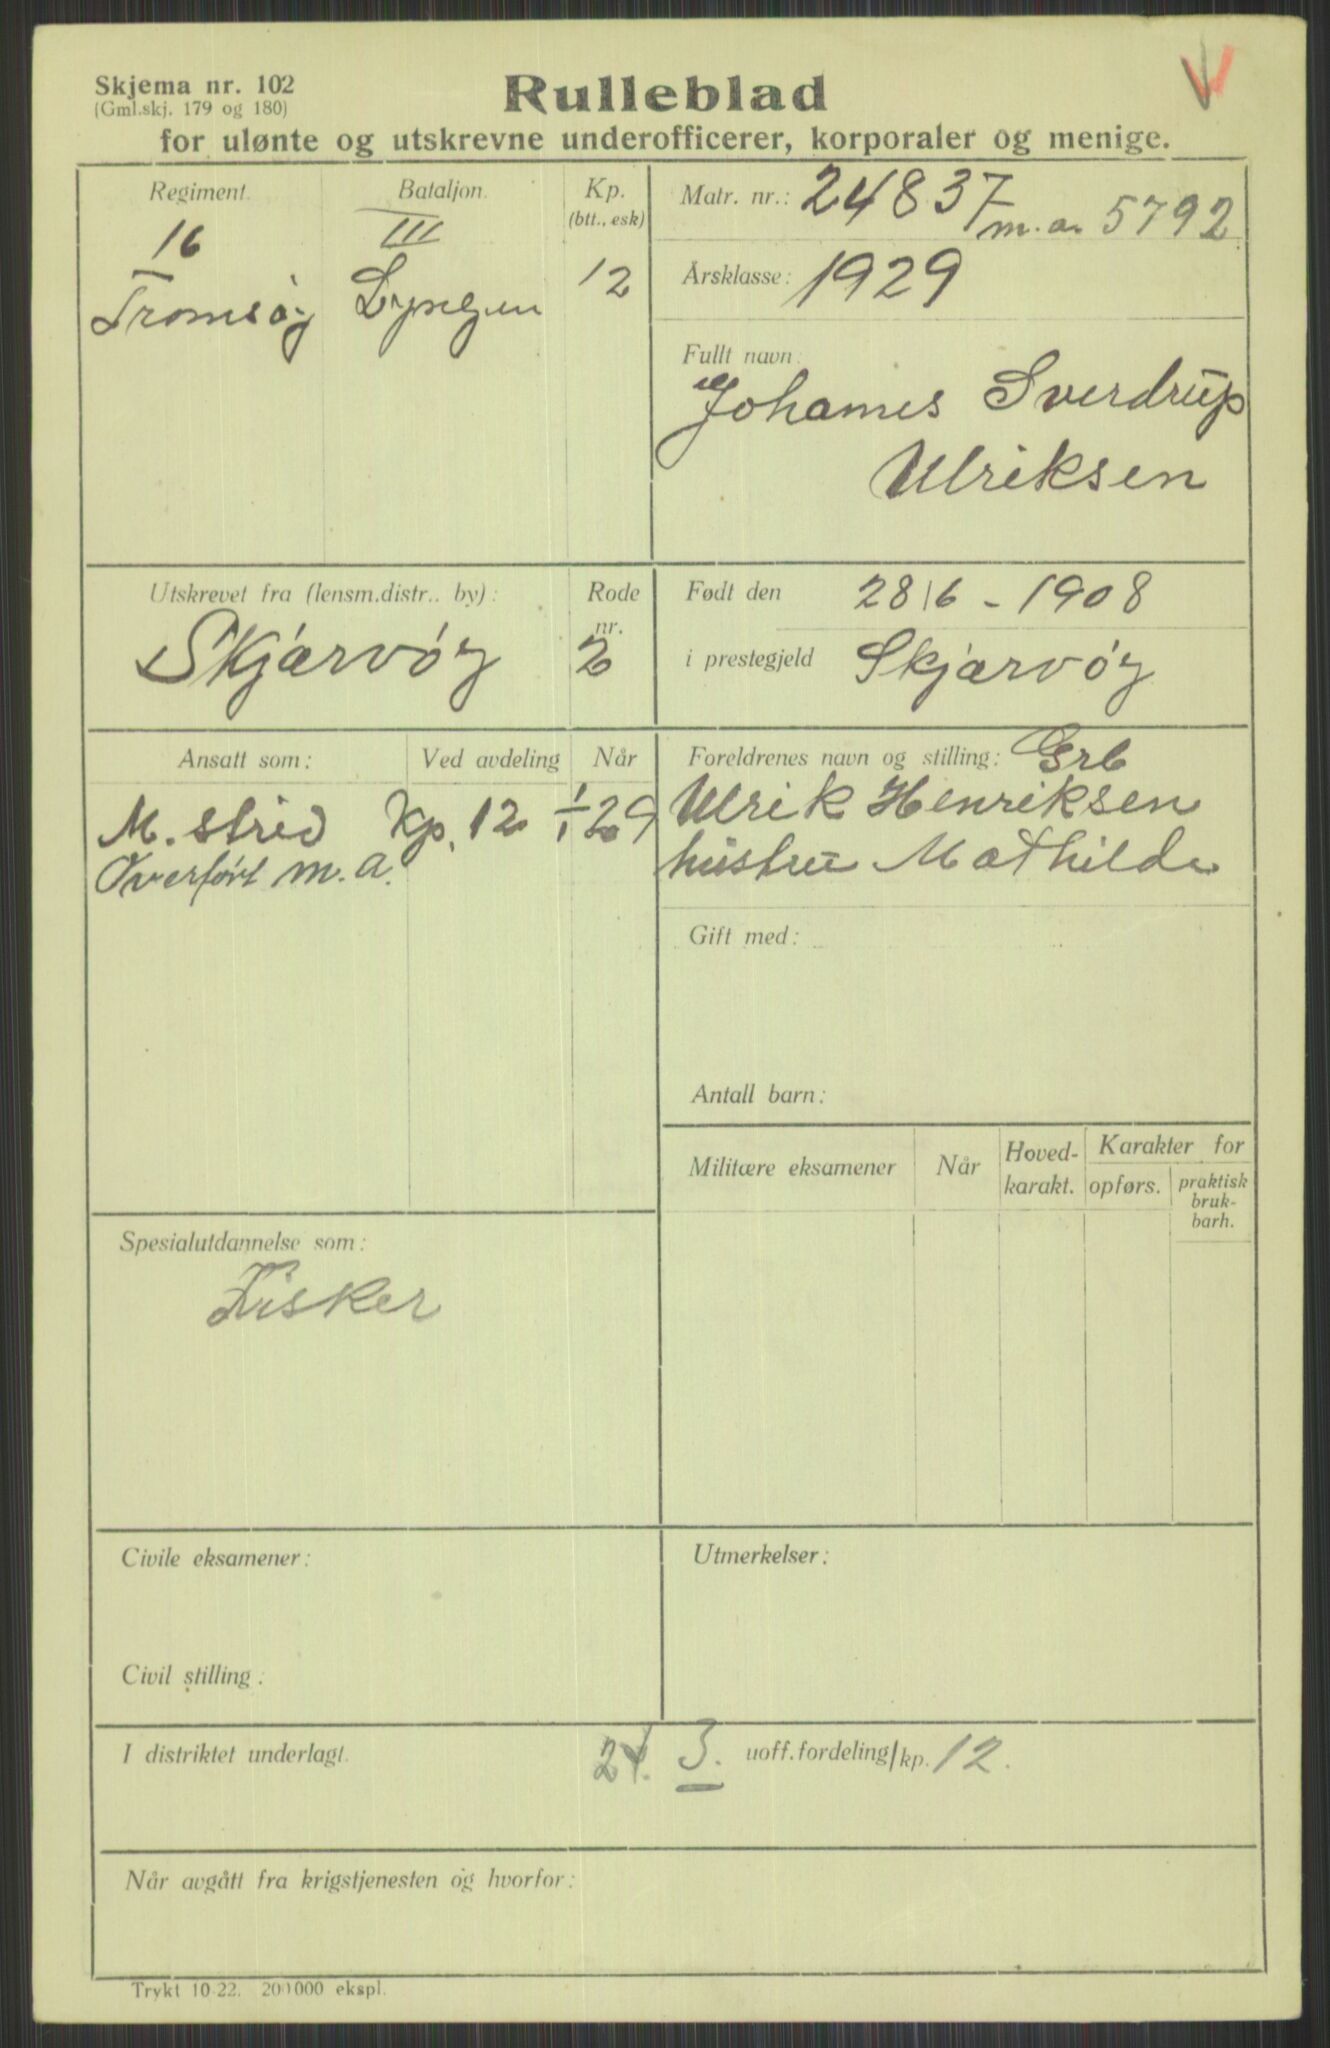 Skjema nr. 102
(Gml.skj. 179 og 180)
Rulleblad
for ulønte og utskrevne underofficerer, korporaler og menige.
Regiment.
16
Tromsöy
Bataljon.
III
Lyngen
Kp.
(btt., esk)
12
Matr. nr.: 24837 m.a. 5792
Årsklasse: 1929
Fullt navn:
Johannes Sverdrup
Ulriksen
Utskrevet fra (lensm.distr.. by):
Skjærvöy
Rode
nr.
2
Født den 28/6 - 1908
i prestegjeld Skjærvöy
Ansatt som:
Ved avdeling
Når
M. strid Kp. 12 1/1 29
Overfört m.a.
Foreldrenes navn og stilling: Grb
Ulrik Henriksen
hustru Mathilde
Gift med:
Antall barn:
Militære eksamener
Når
Hoved-
karakt.
Karakter for
opførs.
praktisk
bruk-
barh.
Spesialutdannelse som:
Fisker
Civile eksamener:
Civil stilling:
Utmerkelser:
I distriktet underlagt. 3. uoff.fordeling/kp. 12.
Når avgått fra krigstjenesten og hvorfor:
Trykt 10-22. 200000 ekspl.